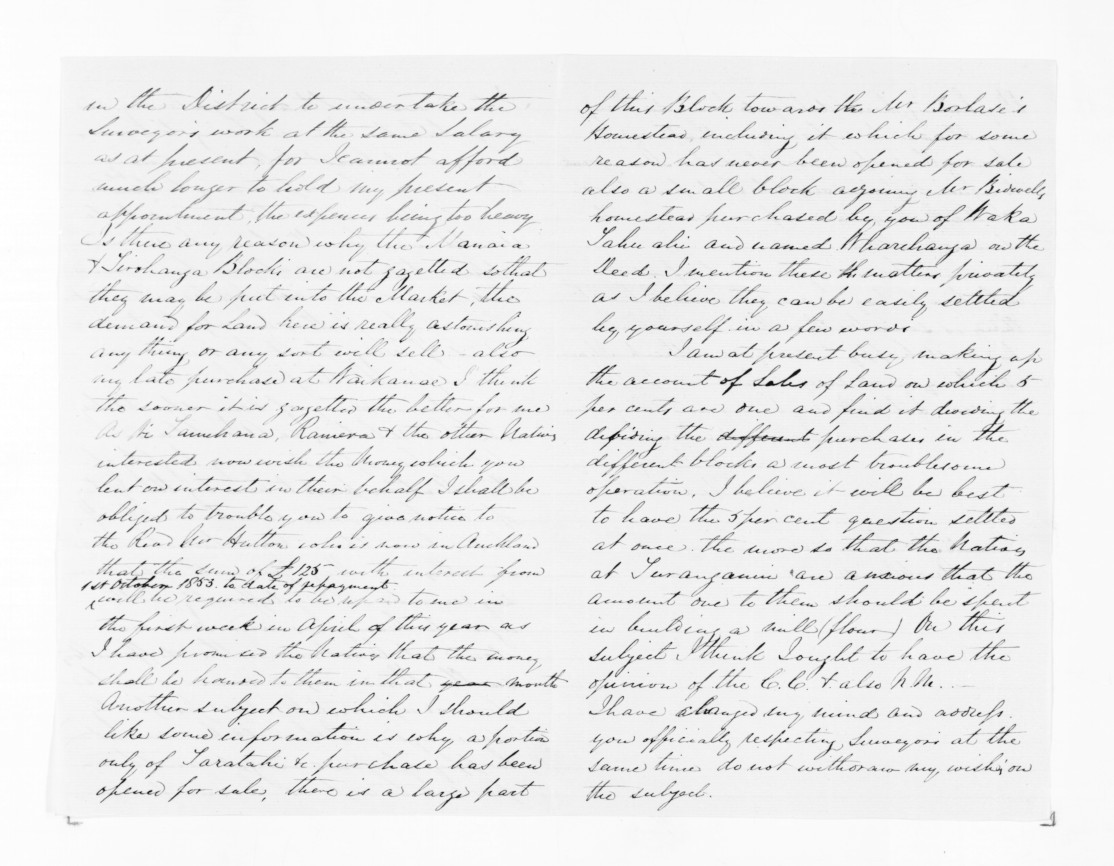 in the District to undertake the
Surveyors work at the same Salary
as at present, for I cannot afford
much longer to hold my present
appointment, the expences being too heavy
Is there any reason why the Manaia
& Tirohanga Blocks are not gazetted so that
they may be put into the Market, the
demand for Land here is really astonishing
any thing or any sort will sell - also
my late purchase at Waikanae I think
the sooner it is gazetted the better for me
As Wi Tamehana, Raniera & the other Natives
interested now wish the Money which you
lent on interest in their behalf I shall be
obliged to trouble you to give notice to
the Revd Mr Hutton who is now in Auckland
that the sum of £125 with interest from
1st October 1853 to date of repayment
will be required to be to me in
the first week in April of this year as
I have promised the Natives that the money
shall be handed to them in that year month
Another subject on which I should
like some information is why a portion
only of Taratahi &c. purchase has been
opened for sale, there is a large part
of this Block towards the Mr Borlase's
Homestead including it which for some
reason has never been opened for sale
also a small block adjoining Mr Bidwells
homestead purchased by you of Waka
Tahuahi and named Wharehanga on the
Deed. I mention these the matters privately
as I believe they can be easily settled
by yourself in a few words
I am at present busy making up
the account of Sales of Land on which 5
per cents are due and find it dividing the
dividing the different purchases in the
different blocks a most troublesome
operation. I believe it will be best
to have the 5 per cent question settled
at once. the more so that the Natives
at Turanganui are anxious that the
amount due to them should be spent
in building a mill (flour) On this
subject I think I ought to have the
opinion of the C.C. & also N.M. -
I have changed my mind and address
you officially respecting Surveyors at the
same time do not withdraw my wish on
the subject.